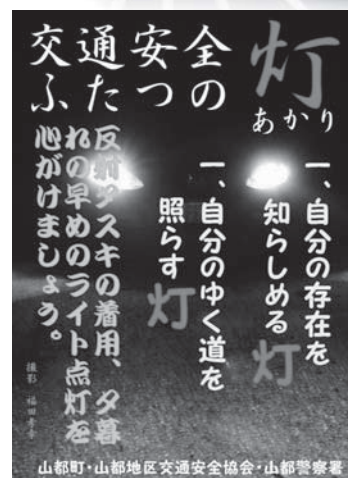 交通安全
ふたつの
灯
あかり
一、自分の存在を
知らしめる灯
一、自分のゆく道を
照らす灯
反射タスキの着用、夕暮
れの早めのライト点灯を
心がけましょう。
撮影 福田孝幸
山都町・山都地区交通安全協会・山都警察署